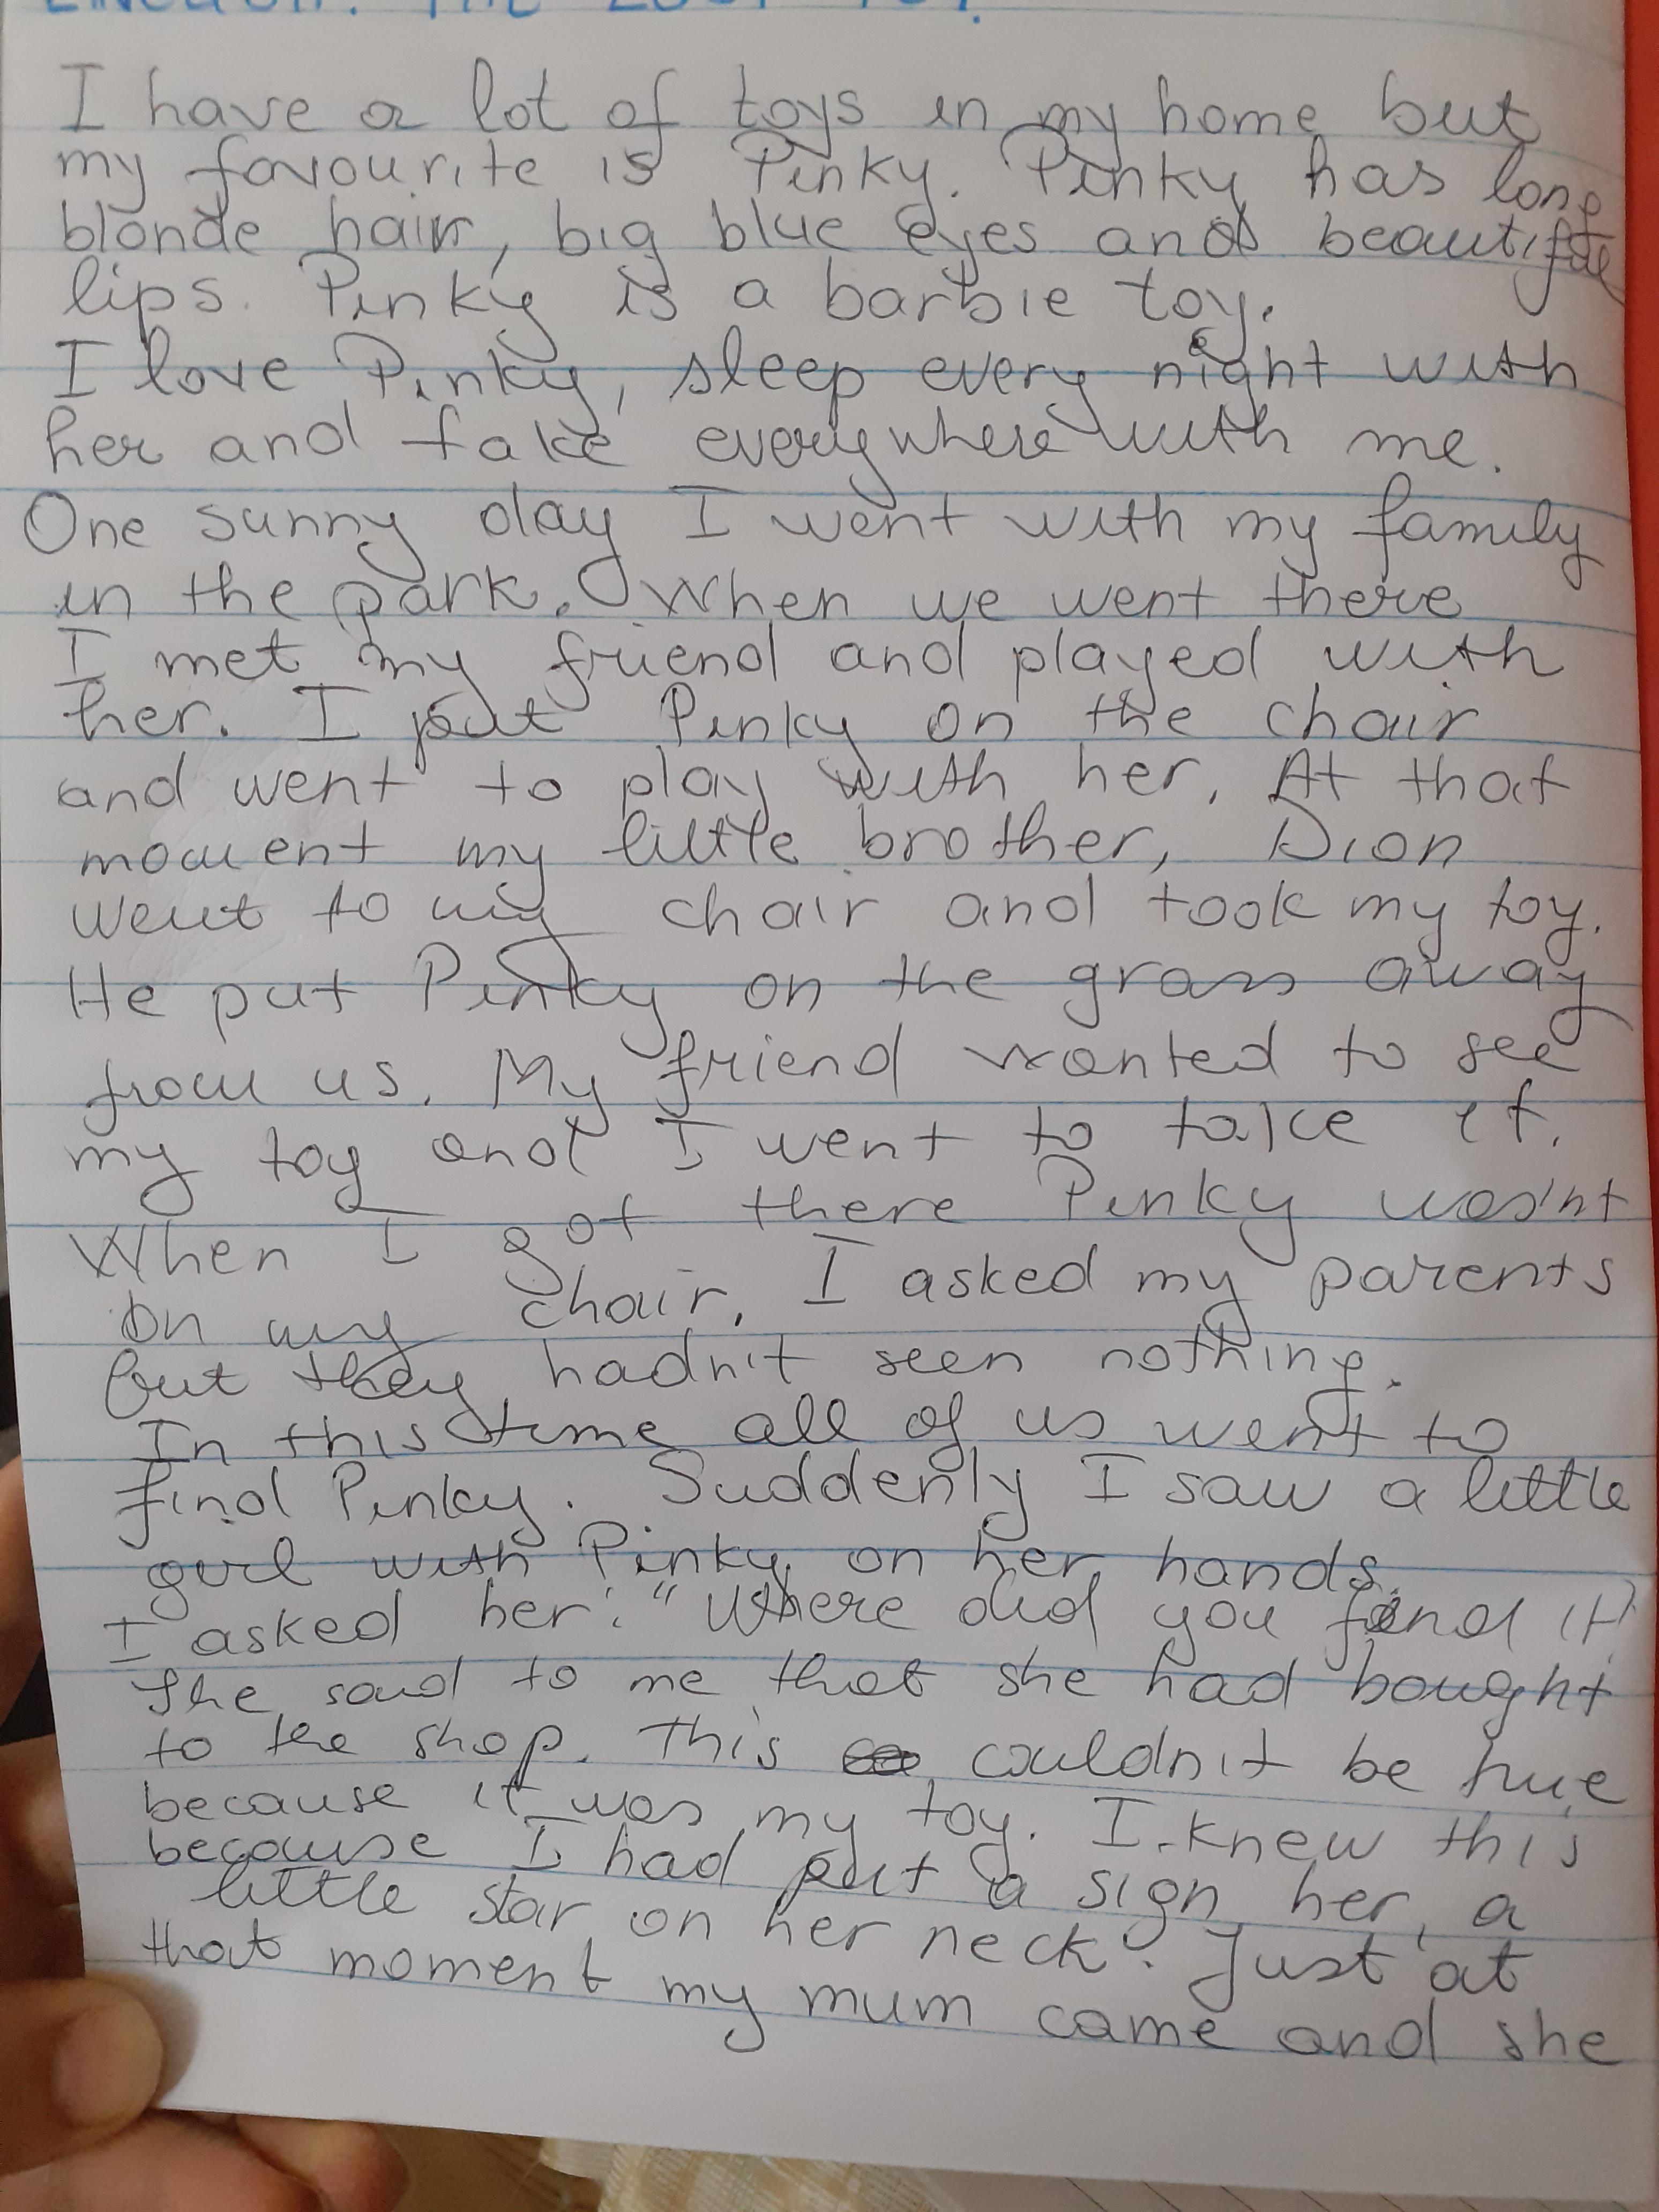 I have a lot of toys in my home but
my favourite is Pinky. Pinky has long
blonde hair, big blue eyes and beautiful
lips. Pinky is a barbie toy.
I love Pinky, sleep every night with
her and take everywhere with me.
One sunny day I went with my family
in the park. When we went there
I met my friend and played with
her. I put Pinky on the chair
and went to play with her. At that
moment my little brother, Dion
went to my chair and took my toy.
He put Pinky on the grass away
from us. My friend wanted to see
my toy and I went to take it.
When I got there Pinky was'nt
on my chair. I asked my parents
but they hadn't seen nothing.
In this time all of us went to
find Pinky. Suddenly I saw a little
girl with Pinky on her hands.
I asked her: "Where did you find it
She said to me that she had bought
to the shop. This couldn't be true
because it was my toy. I knew this
because I had put a sign her, a
little star on her neck. Just at
that moment my mum came and she